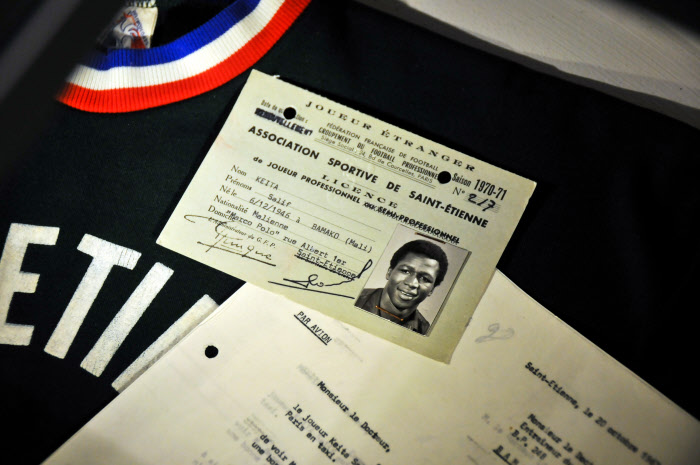 JOUEUR ÉTRANGER
FÉDÉRATION FRANÇAISE DE FOOTBALL
GROUPEMENT DU FOOTBALL PROFESSIONNEL
Siège Social: 24, Bd de Courcelles, PARIS
Saison 1970-71
RENOUVELLEMENT
N° 2/7
ASSOCIATION SPORTIVE DE SAINT-ÉTIENNE
LICENCE
de JOUEUR PROFESSIONNEL OU SEMI-PROFESSIONNEL
Nom KEITA
Prénoms Salif
Né le 6/12/1946 à BAMAKO (Mali)
Nationalité Malienne
Domicile "Marco Polo" rue Albert 1er
Saint-Etienne
ETI
PAR AVION
Saint-Etienne, le
Monsieur le Docteur,
le joueur Keita
Paris en taxi.
de voir
une bon
Monsieur le
Entraîneur
B.P. 248